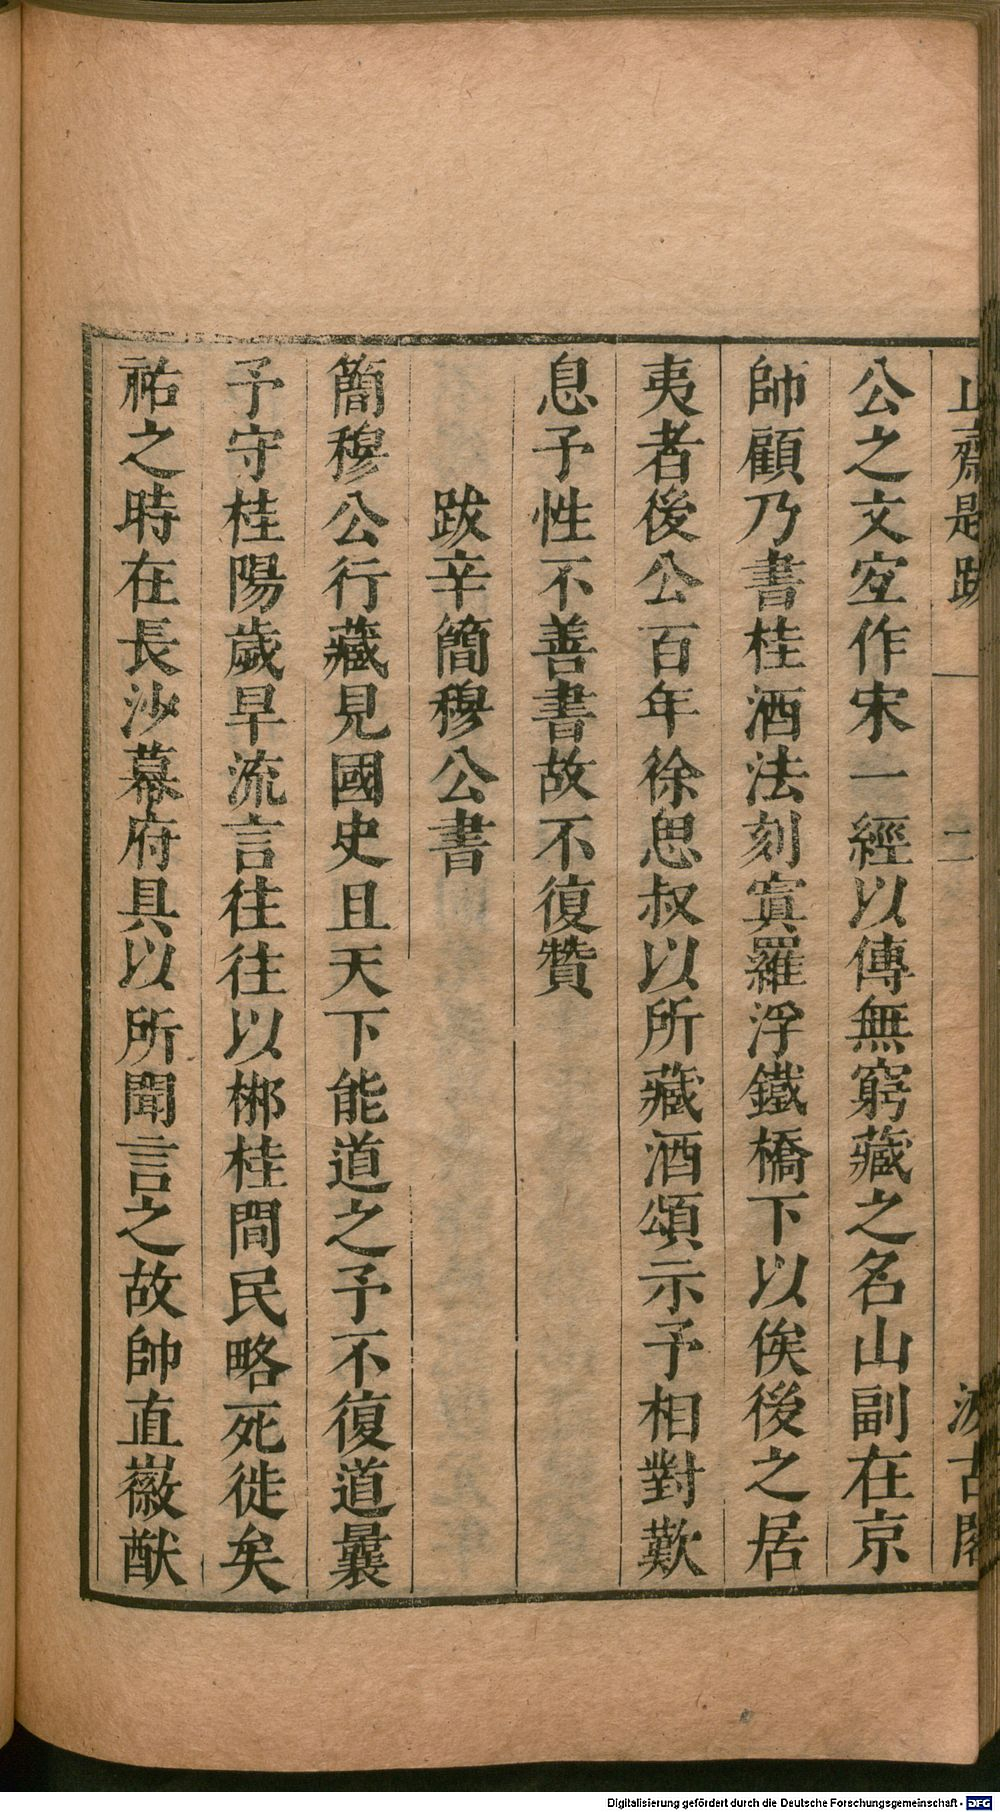 止齋題跋 二 汲古閣
公之文宐作宋一經以傳無窮藏之名山副在京
師顧乃書桂酒法刻寘羅浮鐵橋下以俟後之居
夷者後公百年徐思叔以所藏酒頌示予相對歎
息予性不善書故不復贊
跋辛簡穆公書
簡穆公行藏見國史且天下能道之予不復道曩
予守桂陽歲旱流言往往以郴桂間民略死徙矣
祐之時在長沙幕府具以所聞言之故帥直徽猷
Digitalisierung gefördert durch die Deutsche Forschungsgemeinschaft - DFG